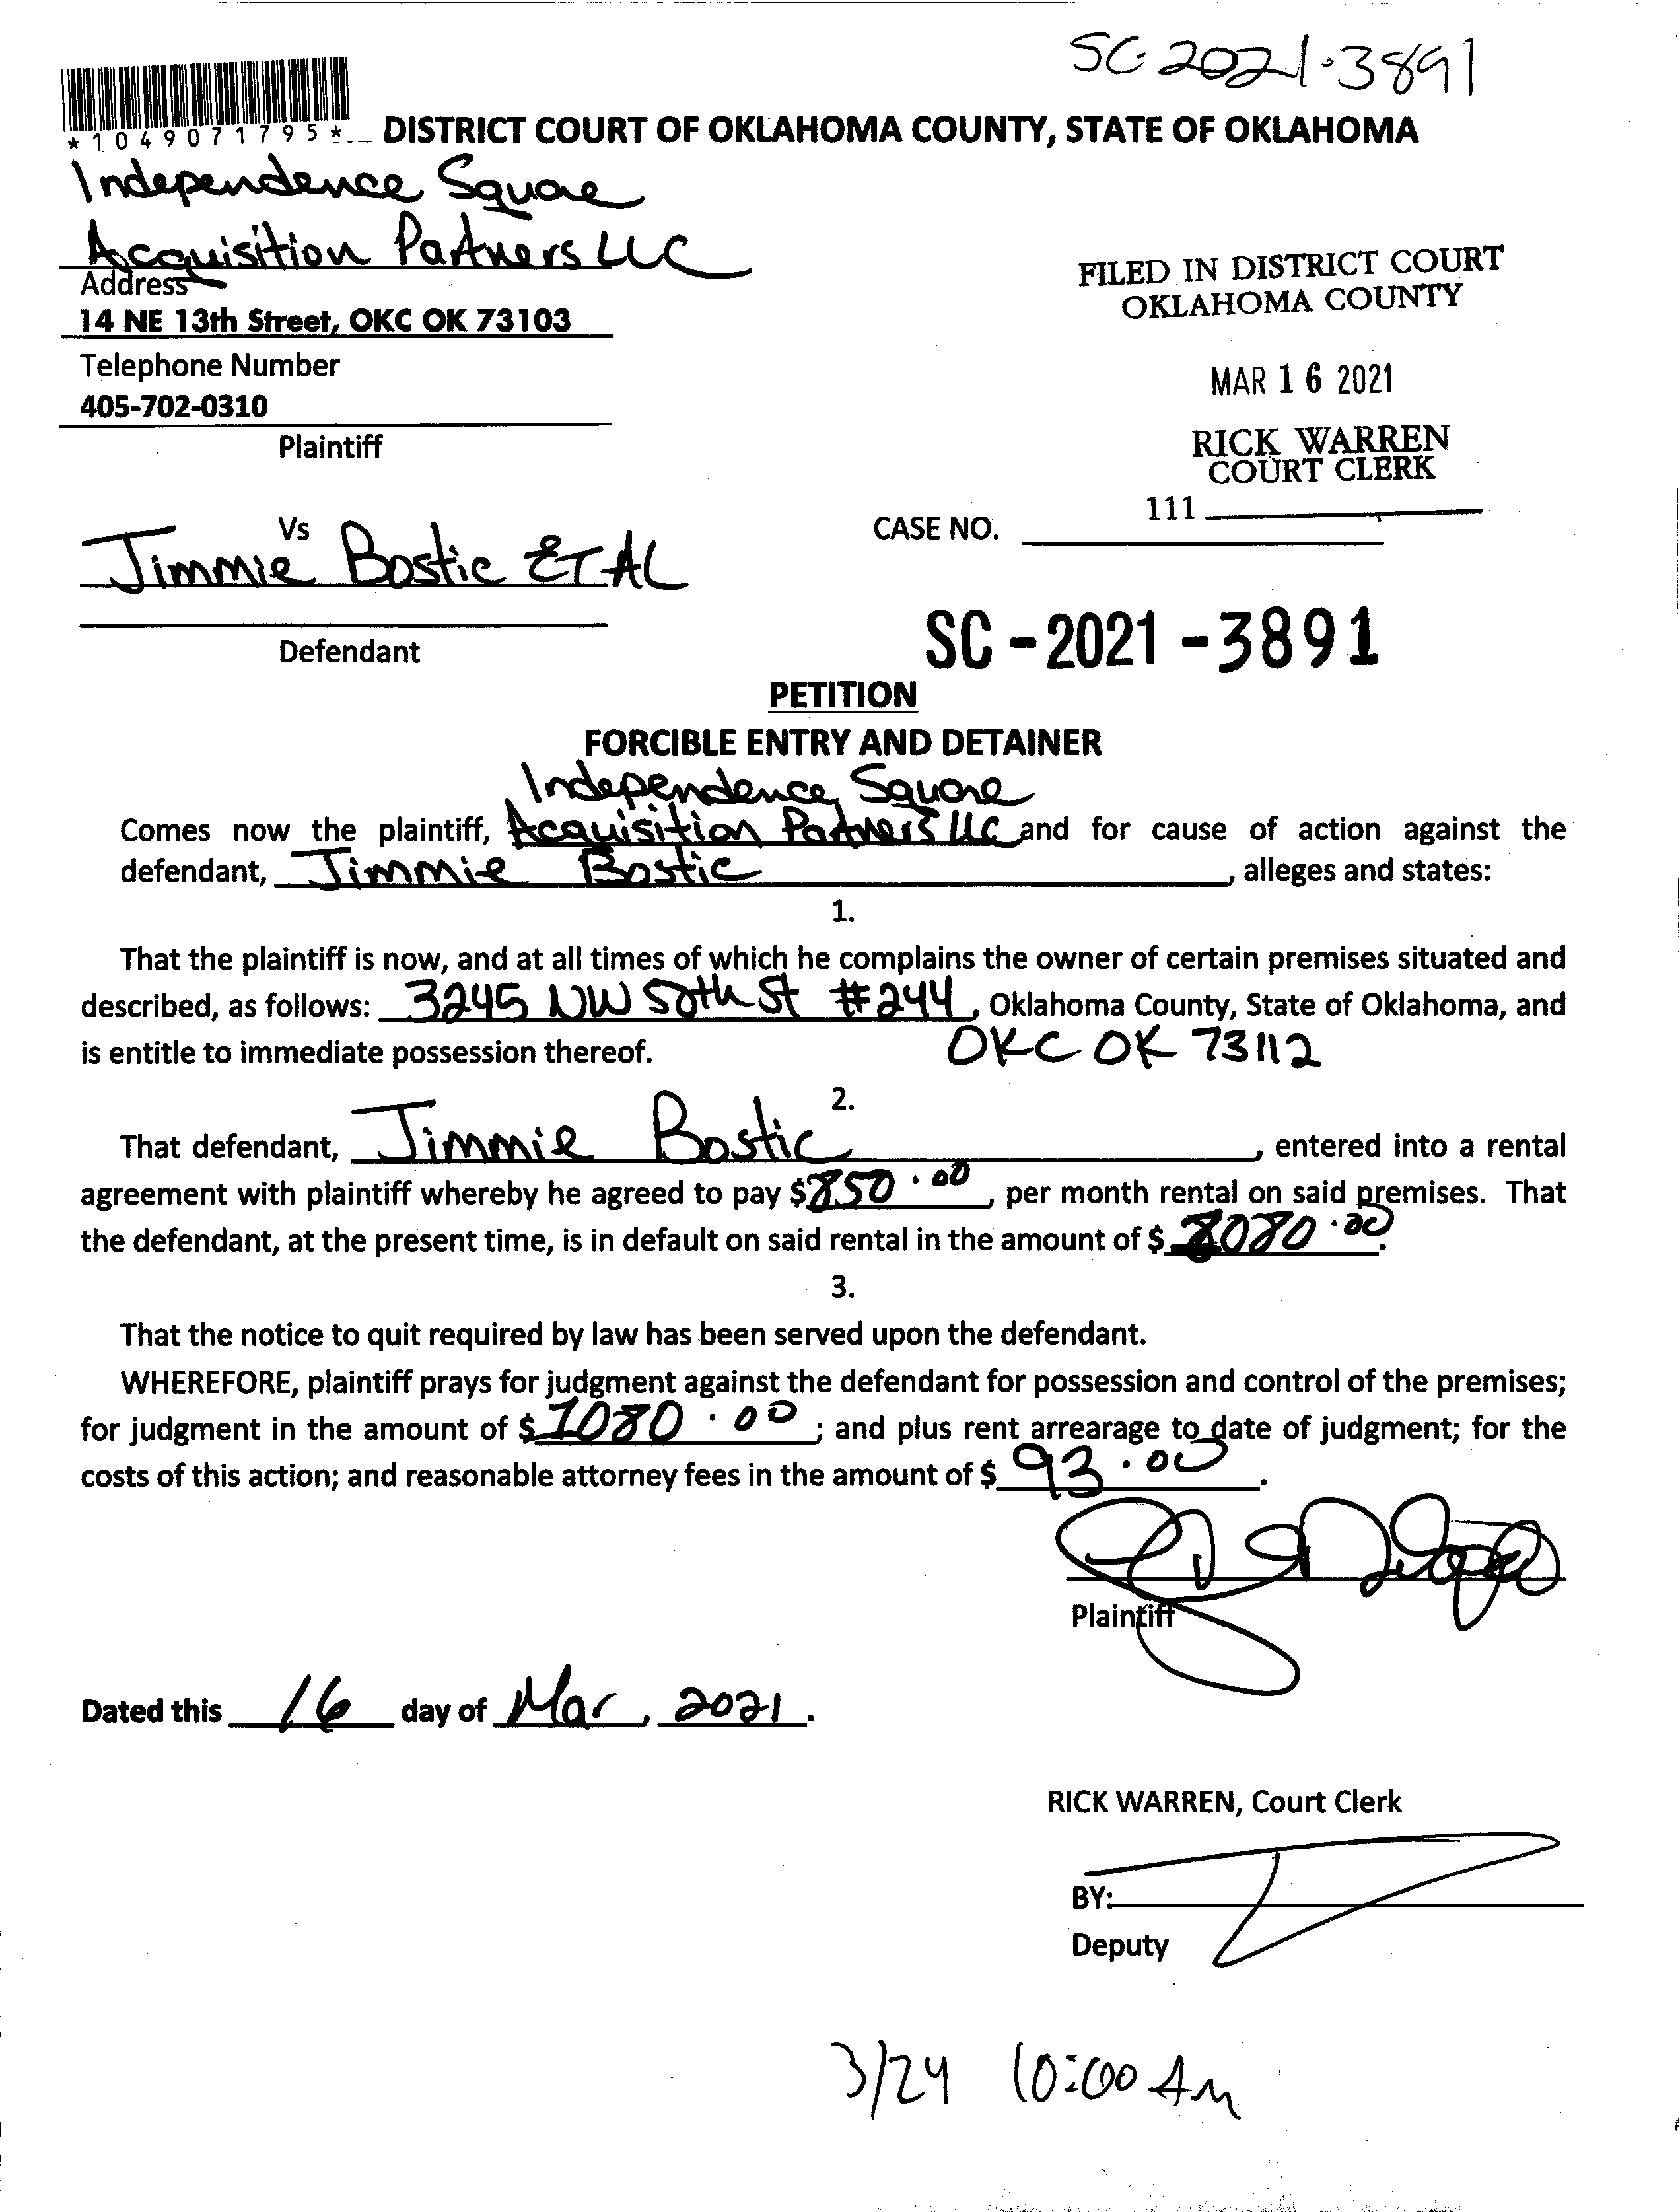 SC-2021-3891
*1049071795*
DISTRICT COURT OF OKLAHOMA COUNTY, STATE OF OKLAHOMA
Independence Square
Acquisition Partners LLC
Address
14 NE 13th Street, OKC OK 73103
Telephone Number
405-702-0310
Plaintiff
FILED IN DISTRICT COURT
OKLAHOMA COUNTY
MAR 16 2021
RICK WARREN
COURT CLERK
111
Vs
CASE NO.
Jimmie Bostic ET AL
Defendant
SC-2021-3891
PETITION
FORCIBLE ENTRY AND DETAINER
Independence Square
Comes now the plaintiff, Acquisition Partners LLC and for cause of action against the
defendant, Jimmie Bostic, alleges and states:
1.
That the plaintiff is now, and at all times of which he complains the owner of certain premises situated and
described, as follows: 3245 NW 50th St #244, Oklahoma County, State of Oklahoma, and
is entitle to immediate possession thereof. OKC OK 73112
2.
That defendant, Jimmie Bostic, entered into a rental
agreement with plaintiff whereby he agreed to pay $850.00, per month rental on said premises. That
the defendant, at the present time, is in default on said rental in the amount of $
3.
That the notice to quit required by law has been served upon the defendant.
WHEREFORE, plaintiff prays for judgment against the defendant for possession and control of the premises;
for judgment in the amount of $1080.00; and plus rent arrearage to date of judgment; for the
costs of this action; and reasonable attorney fees in the amount of $93.00.
Plaintiff
Dated this 16 day of Mar, 2021.
RICK WARREN, Court Clerk
BY:
Deputy
3/24 10:00 AM